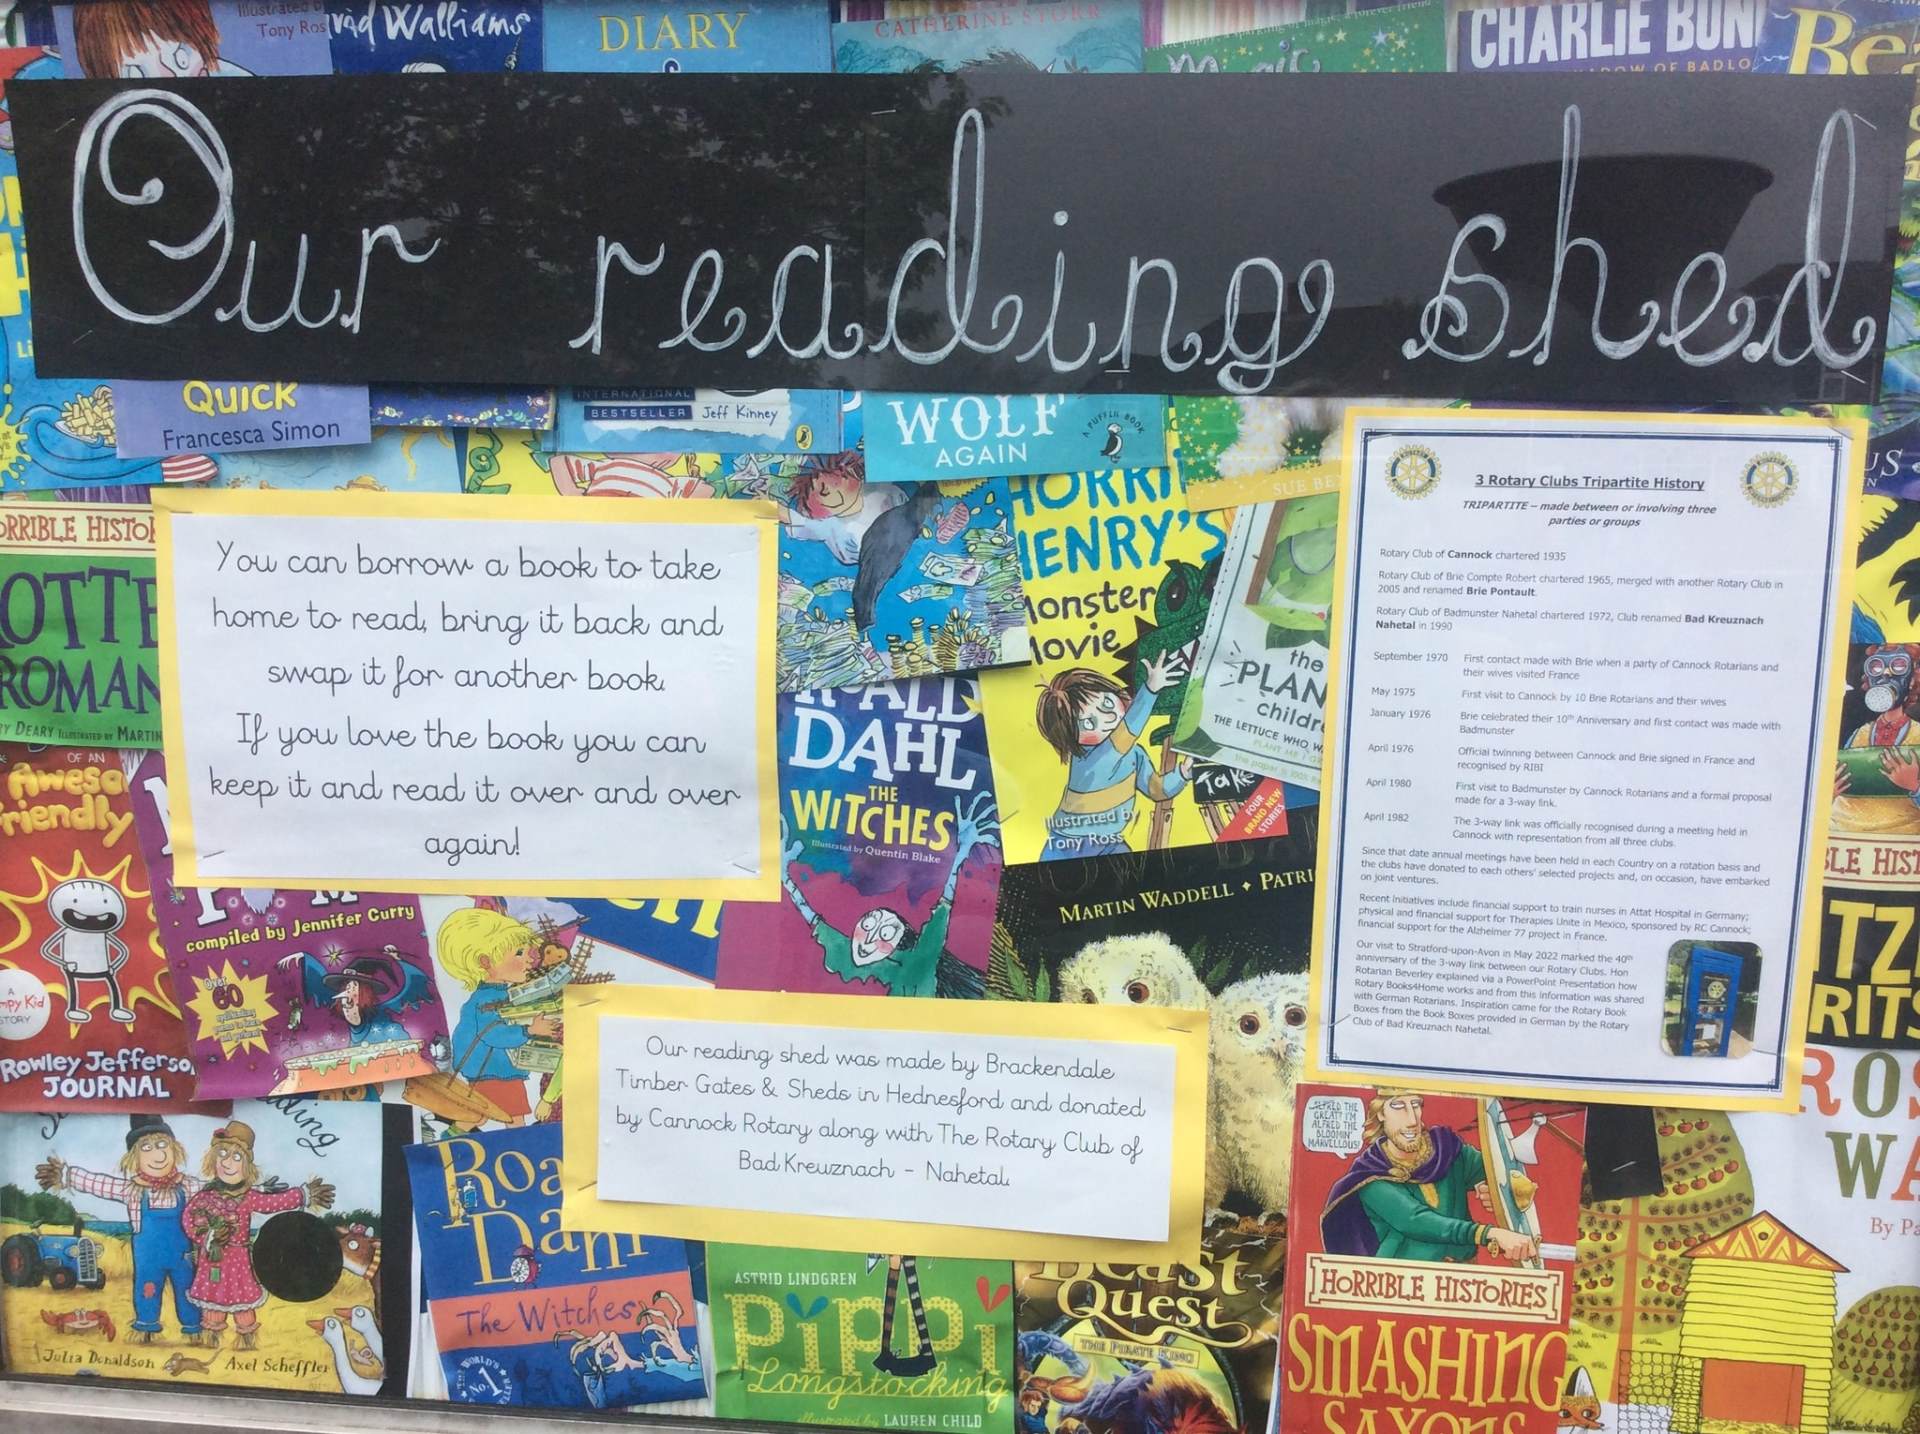 Illustrated by
Tony Ros
vid Walliams
DIARY
CATHERINE STORR
Magic
CHARLIE BON
SHADOW OF BADLO
Be
Our reading shed
QUICK
Francesca Simon
INTERNATIONAL
BESTSELLER Jeff Kinney
WOLF
AGAIN
A PUFFIN BOOK
SUE BE
ORRIBLE HISTO
OTTE
ROMAN
RY DEARY ILLUSTRATED BY MARTIN
You can borrow a book to take
home to read, bring it back and
swap it for another book.
If you love the book you can
keep it and read it over and over
again!
HORRI
HENRY'S
Monster
Movie
Illustrated by
Tony Ross
Take
FOUR
BRAND NEW
STORIES
the
PLAN
childr
THE LETTUCE WHO W
ROALD
DAHL
THE
WITCHES
Illustrated by Quentin Blake
3 Rotary Clubs Tripartite History
TRIPARTITE – made between or involving three
parties or groups
Rotary Club of Cannock chartered 1935
Rotary Club of Brie Compte Robert chartered 1965, merged with another Rotary Club in
2005 and renamed Brie Pontault.
Rotary Club of Badmunster Nahetal chartered 1972, Club renamed Bad Kreuznach
Nahetal in 1990
September 1970 First contact made with Brie when a party of Cannock Rotarians and
their wives visited France
May 1975 First visit to Cannock by 10 Brie Rotarians and their wives
January 1976 Brie celebrated their 10th Anniversary and first contact was made with
Badmunster
April 1976 Official twinning between Cannock and Brie signed in France and
recognised by RIBI
April 1980 First visit to Badmunster by Cannock Rotarians and a formal proposal
made for a 3-way link.
April 1982 The 3-way link was officially recognised during a meeting held in
Cannock with representation from all three clubs.
Since that date annual meetings have been held in each Country on a rotation basis and
the clubs have donated to each others' selected projects and, on occasion, have embarked
on joint ventures.
Recent Initiatives include financial support to train nurses in Attat Hospital in Germany;
physical and financial support for Therapies Unite in Mexico, sponsored by RC Cannock;
financial support for the Alzheimer 77 project in France.
Our visit to Stratford-upon-Avon in May 2022 marked the 40th
anniversary of the 3-way link between our Rotary Clubs. Hon
Rotarian Beverley explained via a PowerPoint Presentation how
Rotary Books4Home works and from this information was shared
with German Rotarians. Inspiration came for the Rotary Book
Boxes from the Book Boxes provided in German by the Rotary
Club of Bad Kreuznach Nahetal.
OF AN
Aweso
Friendly
A
mpy Kid
STORY
Rowley Jefferso
JOURNAL
compiled by Jennifer Curry
Over
60
MARTIN WADDELL • PATRI
Our reading shed was made by Brackendale
Timber Gates & Sheds in Hednesford and donated
by Cannock Rotary along with The Rotary Club of
Bad Kreuznach - Nahetal.
BLE HIST
TZ
RITS
ROS
WA
By Pa
Julia Donaldson
Axel Scheffler
Roa
Dahl
The Witches
THE WORLD'S
No.1
ASTRID LINDGREN
PiPPi
Longstocking
illustrated by LAUREN CHILD
Beast
Quest
THE PIRATE KING
ALFRED THE
GREAT? I'M
ALFRED THE
BLOOMIN'
MARVELLOUS!
HORRIBLE HISTORIES
SMASHING
SAXONS